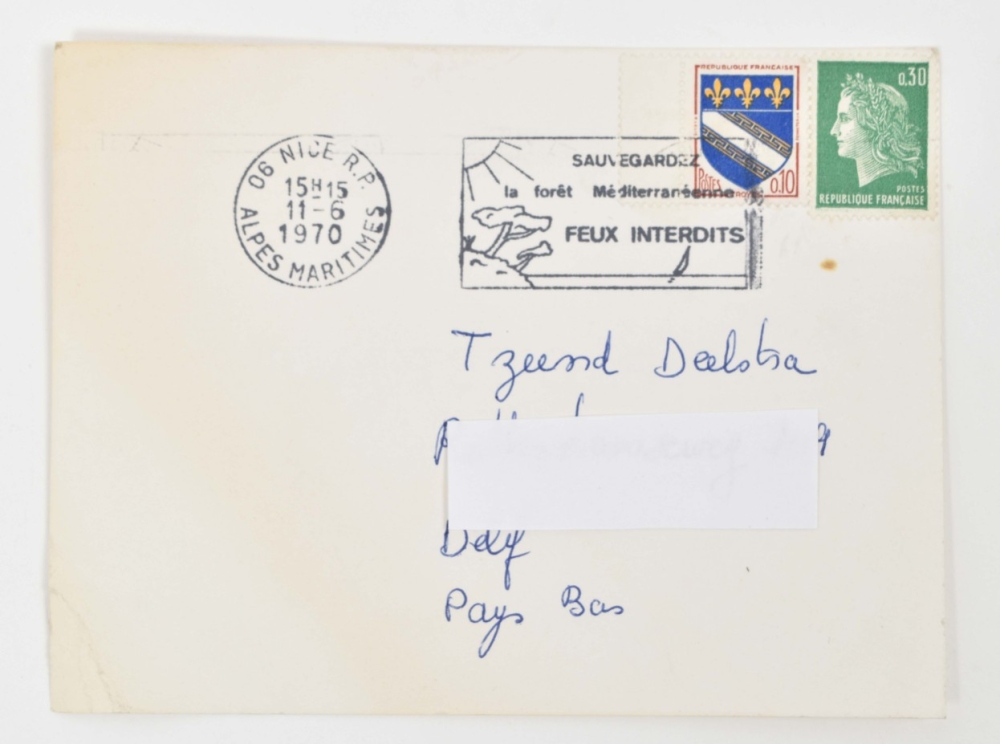 06 NICE R.P.
15H15
11-6
1970
ALPES MARITIMES
SAUVEGARDEZ
la forêt Méditerranéenne
FEUX INTERDITS
REPUBLIQUE FRANÇAISE
POSTES
0,10
0,30
POSTES
REPUBLIQUE FRANÇAISE
Tzeend Deelstra
Pays Bas